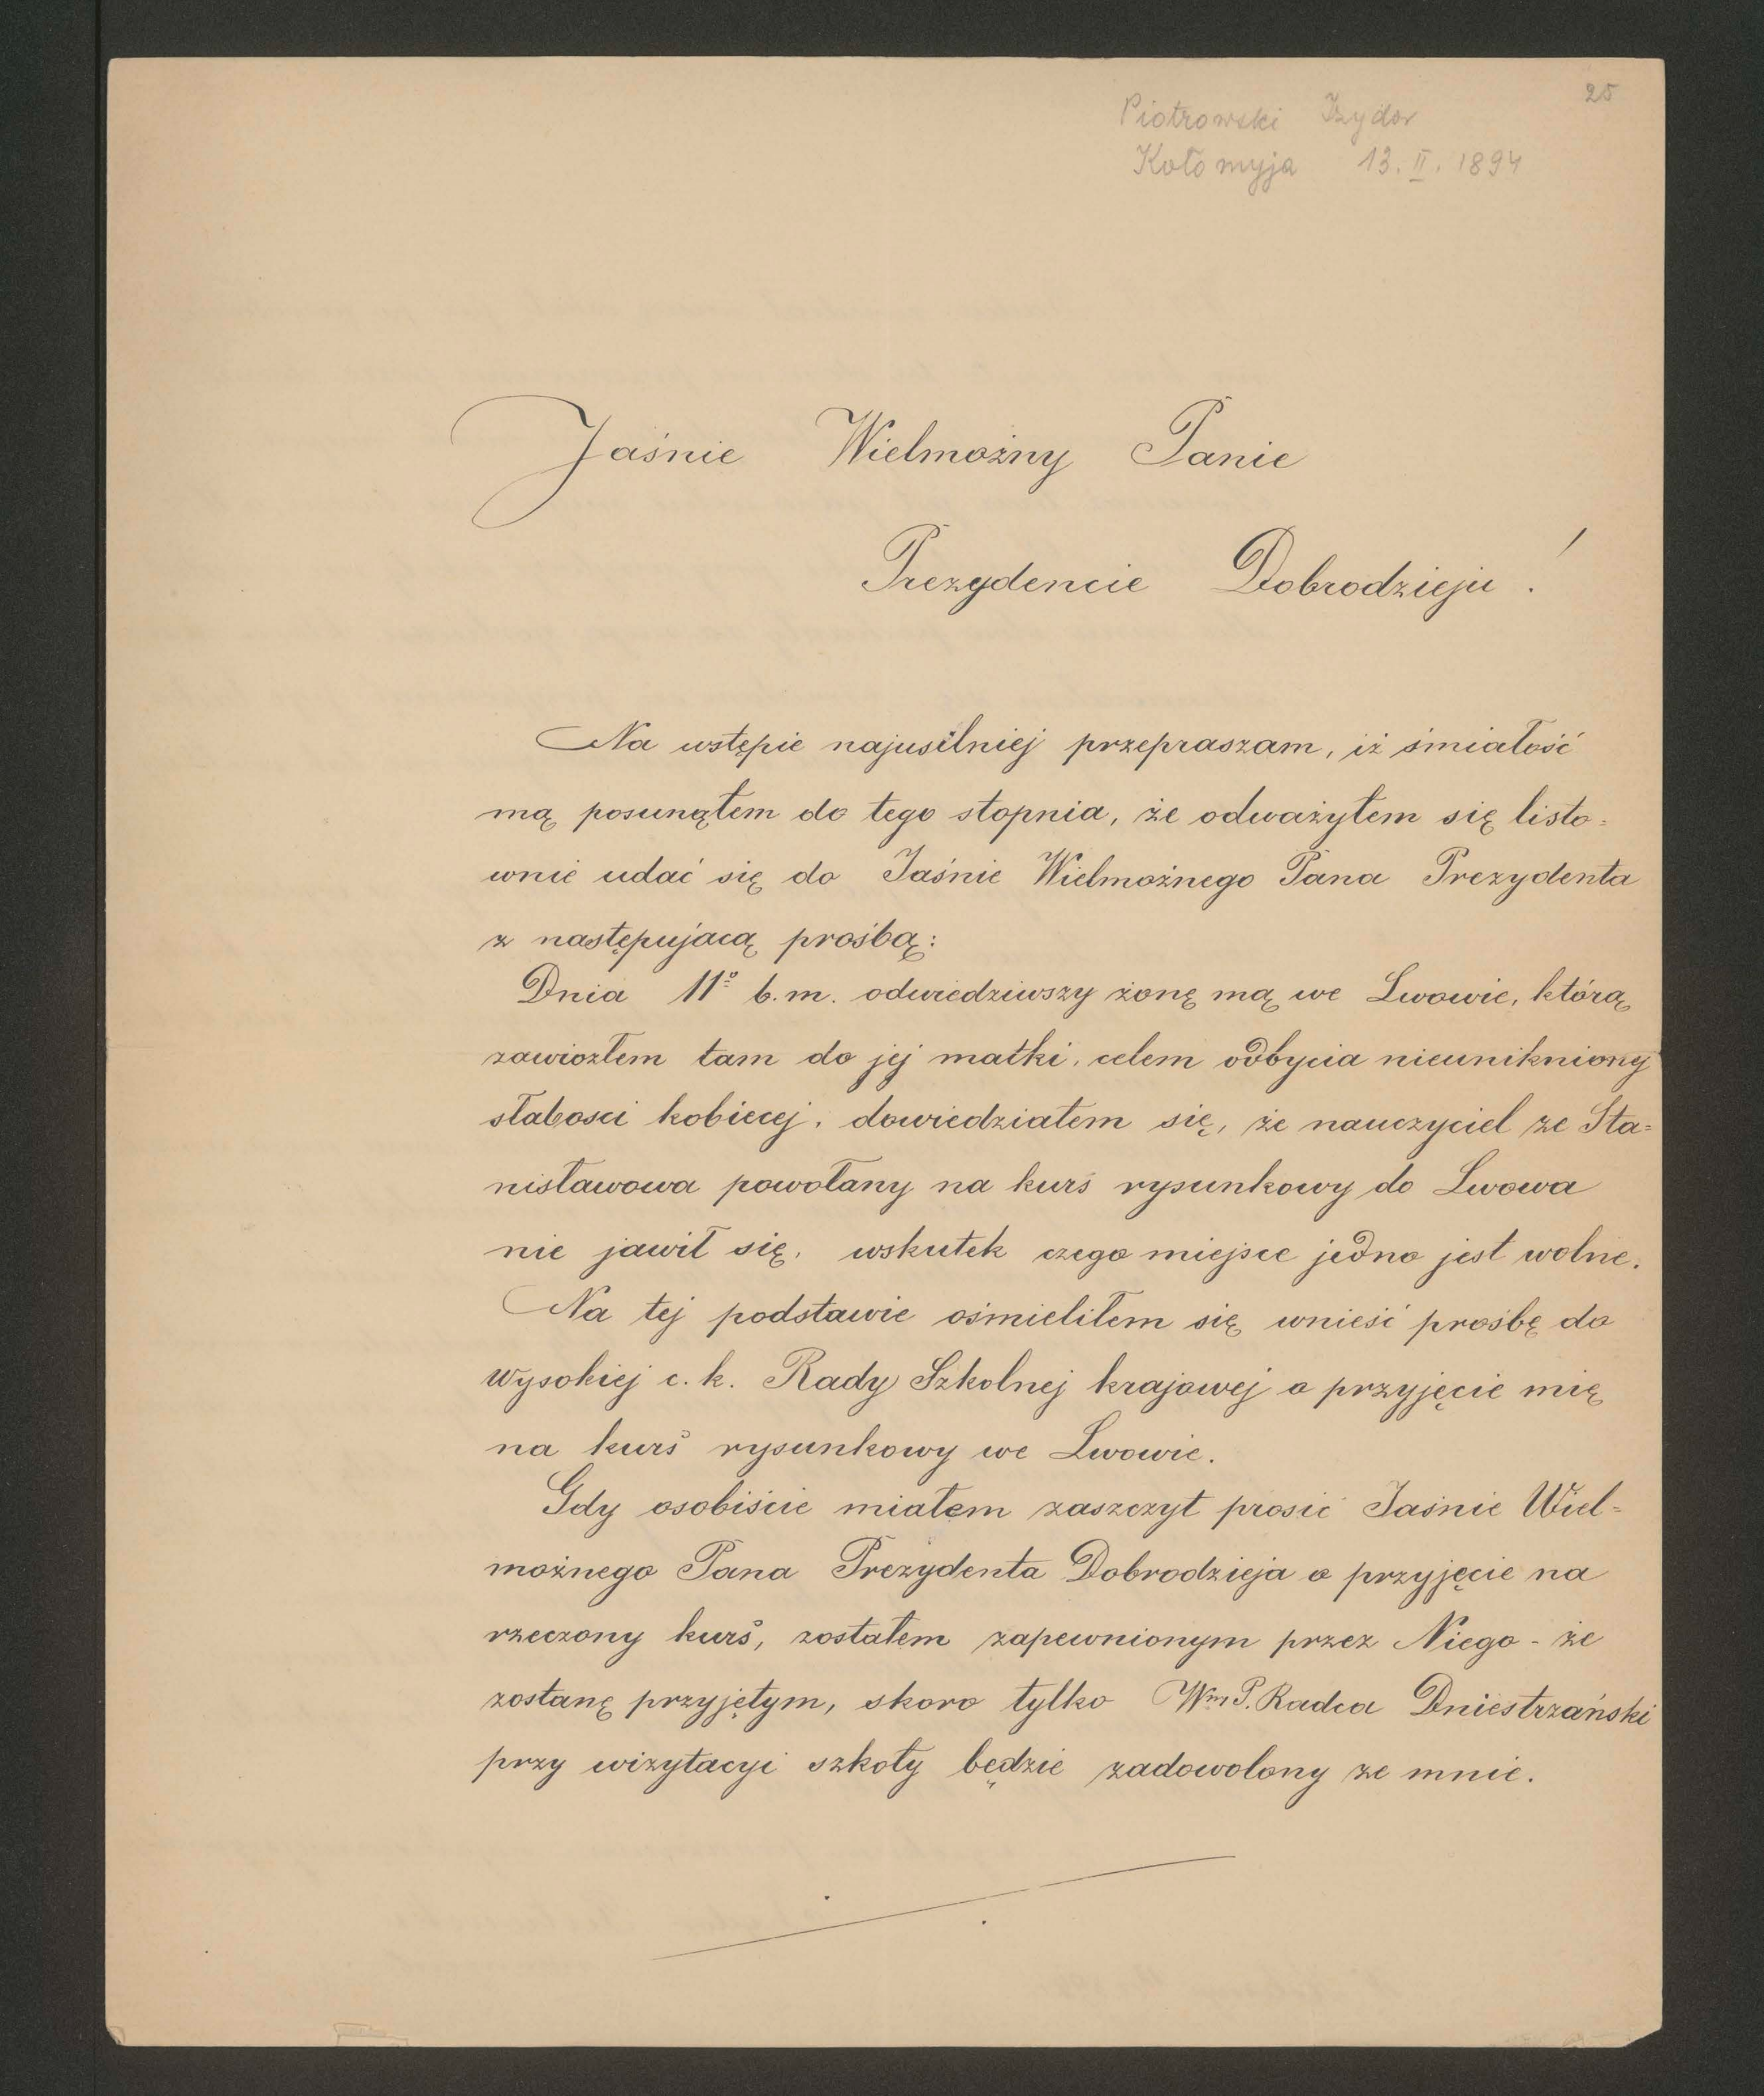 25
Piotrowski Izydor
Kołomyja 13. II. 1894
Jaśnie Wielmożny Panie
Prezydencie Dobrodzieju !
Na wstępie najusilniej przepraszam, iż śmiałość
mą posunąłem do tego stopnia, że odważyłem się listo=
wnie udać się do Jaśnie Wielmożnego Pana Prezydenta
z następującą prośbą:
Dnia 11º b.m. odwiedziwszy żonę mą we Lwowie, którą
zawiozłem tam do jej matki, celem odbycia nieuniknionej
słabosci kobiecej, dowiedziałem się, że nauczyciel ze Sta=
nisławowa powołany na kurs rysunkowy do Lwowa
nie jawił się, wskutek czego miejsce jedno jest wolne.
Na tej podstawie ośmieliłem się wnieść prośbę do
wysokiej c. k. Rady Szkolnej krajowej o przyjęcie mię
na kurs rysunkowy we Lwowie.
Gdy osobiście miałem zaszczyt prosić Jaśnie Wiel=
możnego Pana Prezydenta Dobrodzieja o przyjęcie na
rzeczony kurs, zostałem zapewnionym przez Niego - że
zostanę przyjętym, skoro tylko WmP. Radca Dniestrzański
przy wizytacyi szkoły będzie zadowolony ze mnie.